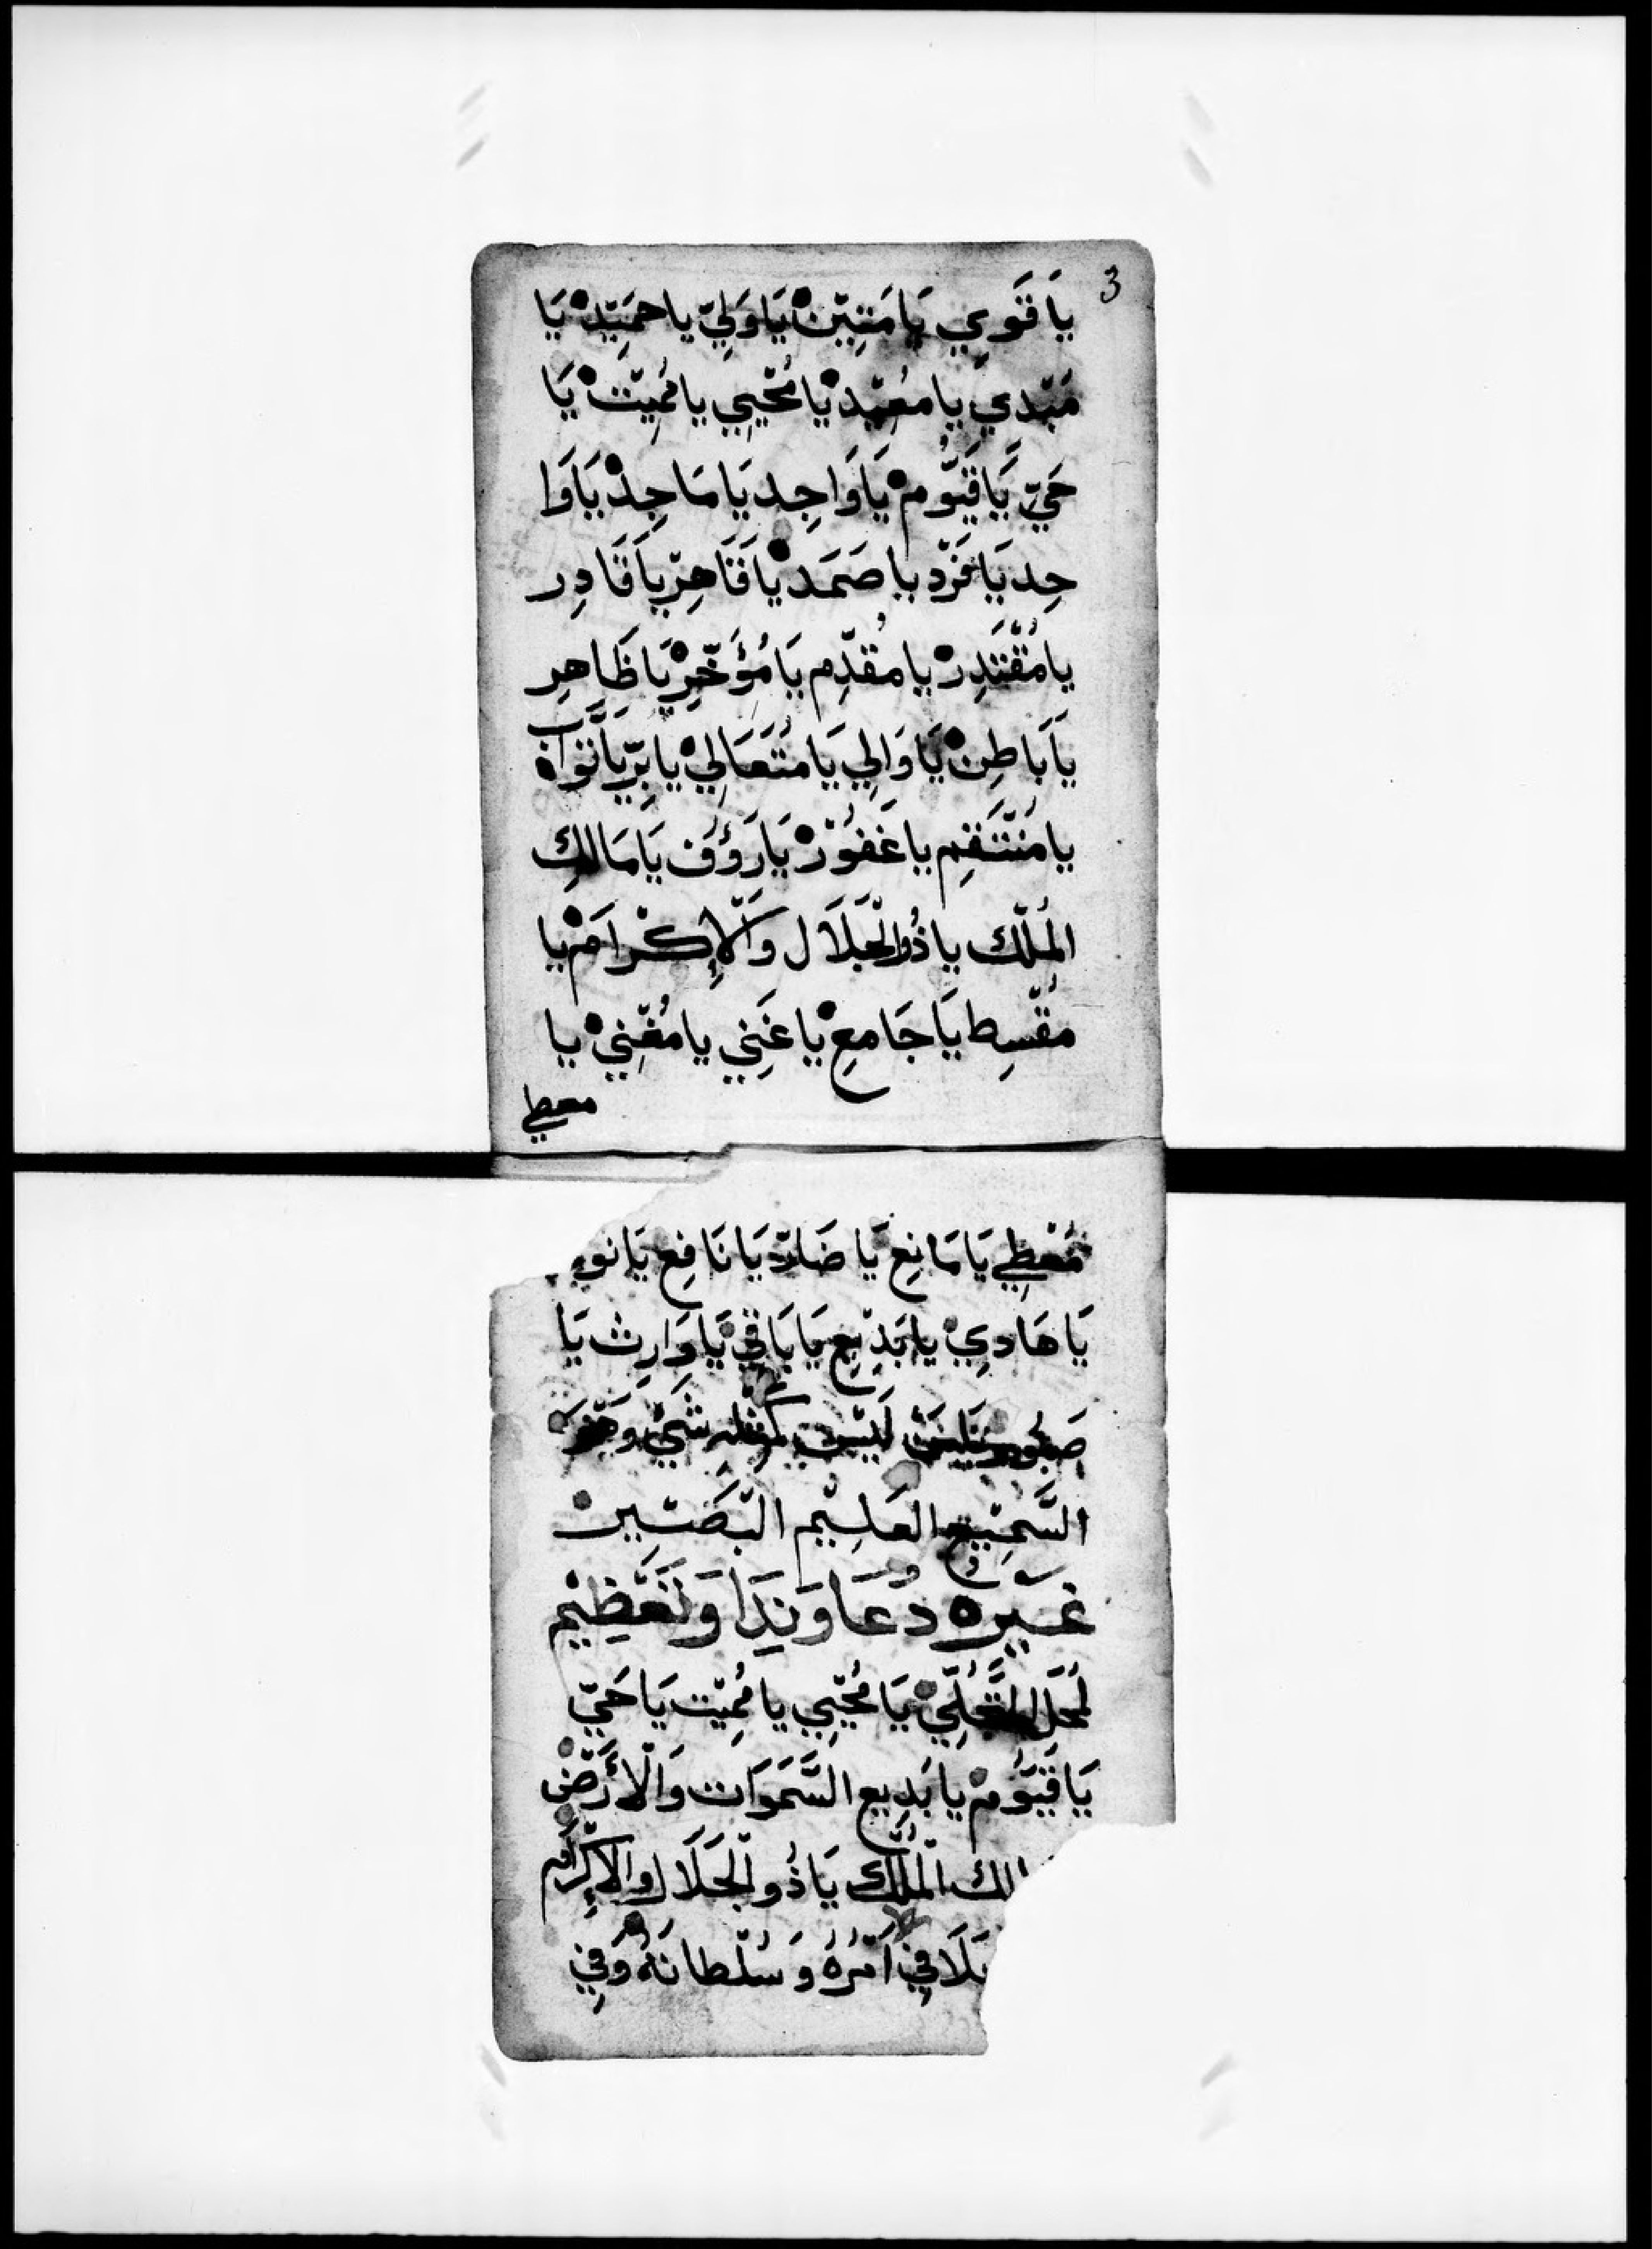 3
يَا قَوِي يَا مَتِيْن يَا وَلِيّ يا حَمِيْد يَا
مُبْدي يا مُعِيْد يا مُحْيِي يا مُمِيْت يَا
حَيّ يَا قَيُّوم يَا وَاجِد يَا مَاجِدْ يَا وَا
حِد يَا فَرْد يا صَمَد يا قَاهِرْ يا قَادِر
يا مُقْتَدِر يا مُقَدِّم يَا مُؤَخِّرْ يَا ظَاهِر
يَا بَاطِن يَا وَالِي يَا مُتَعَالِي يا بَرّ يَا تَوَّاب
يا مُنْتَقِم يا غَفُوْر يَا رَؤُف يَا مَالِك
المُلْك يا ذُو الْجَلَال وَالْإِكْرَام يا
مُقْسِط يَا جَامِع يا غَنِي يا مُغْنِي يا
معطي
مُعْطِي يَا مَانِع يَا ضَارّ يَا نَافِع يَا نو
يَا هَادِي يا بَدِيع يَا بَاقِي يَا وَارِث يَا
صَبُور لَيْسَ كَمِثْلِهِ شَيْء وَهُوَ
السَّمِيْع العَلِيْم الْبَصِير
غَيره دُعَا وَنِدَا وَتَعْظِيْم
يَا مُحْيِي يا مُمِيْت يَا حَيّ
يَا قَيُّوم يا بَدِيع السَّمَوَات وَالْأَرْض
الك الْمُلْك يَا ذُو الْجَلَال والْإِكْرَام
بَلَا فِي أَمْرُهُ وَسُلْطَانَهُ وَفِي